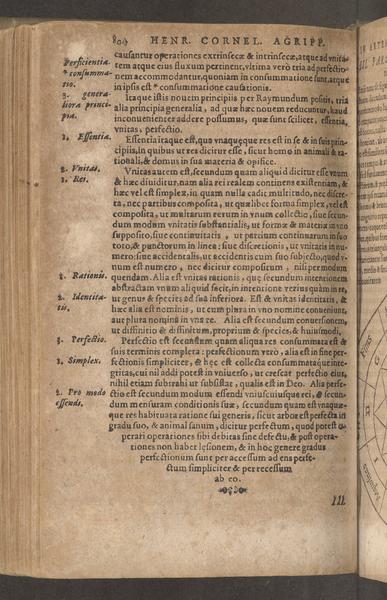 804 HENR. CORNEL. AGRIPP.
causantur operationes extrinsecæ & intrinsecæ, atque ad vnita-
Perficientia tem atque eius fluxum pertinent, vltima verò tria ad perfectio-
& consumma- nem accommodantur, quoniam in consummatione sunt, atque
tio. in ipsis est consummatione causationis.
3. genera- Itaque istis nouem principiis per Raymundum positis, tria
liora princi- alia principia generalia, ad quæ hæc nouem reducuntur, haud
pia. inconuenienter addere possumus, quæ sunt scilicet, essentia,
vnitas, perfectio.
1. Essentia. Essentia itaque est, quo vnaquæque res est in se & in suis prin-
cipiis, in quibus vt res dicitur esse, sicut homo in animali & ra-
tionali, & domus in sua materia & opifice.
2. Vnitas. Vnitas autem est, secundum quam aliquid dicitur esse vnum
1. Rei. & hæc diuiditur, nam alia rei realem continens existentiam, &
hæc vel est simplex, in quam nulla cadit multitudo, nec discre-
ta, nec partibus composita, vt quælibet forma simplex, vel est
composita, vt multarum rerum in vnum collectio, siue secun-
dum modum vnitatis substantialis, vt formæ & materiæ in vno
supposito, siue continuitatis, vt partium continuarum in suo
toto, & punctorum in linea: siue discretionis, vt vnitatis in nu-
mero: siue accidentalis, vt accidentis cum suo subiecto, quod v-
num est numero, nec dicitur compositum, nisi per modum
2. Rationis. quendam. Alia est vnitas rationis, quę secundum intentionem
abstractam vnum aliquid facit, in intentione verius quàm in re,
2. Identita- vt genus & species ad sua inferiora. Est & vnitas identitatis, &
tis. hæc alia est nominis, vt cum plura in vno nomine conueniunt,
aut plura nomina in vna re. Alia est secundum conuersionem,
vt diffinitio & diffinitum, proprium & species, & huiusmodi.
3. Perfectio. Perfectio est secundum quam aliqua res consummata est &
suis terminis completa: perfectionum verò, alia est in fine per-
1. Simplex. fectionis simpliciter, & hęc est collecta consummataque inte-
gritas, cui nil addi potest in vniuerso, vt crescat perfectio eius,
nihil etiam subtrahi vt subsistat, qualis est in Deo. Alia perfe-
2. Pro modo ctio est secundum modum essendi vniuscuiusque rei, & secun-
essendi. dum mensuram conditionis suæ, secundum quam est vnaquæ-
que res habituata ratione sui generis, sicut arbor est perfecta in
gradu suo, & animal sanum, dicitur perfectum, quod potest o-
perari operationes sibi debitas sine defectu, & post opera-
tiones non habet lęsionem, & in hoc genere gradus
perfectionum sunt per accessum ad ens perfe-
ctum simpliciter & per recessum
ab eo.
III.